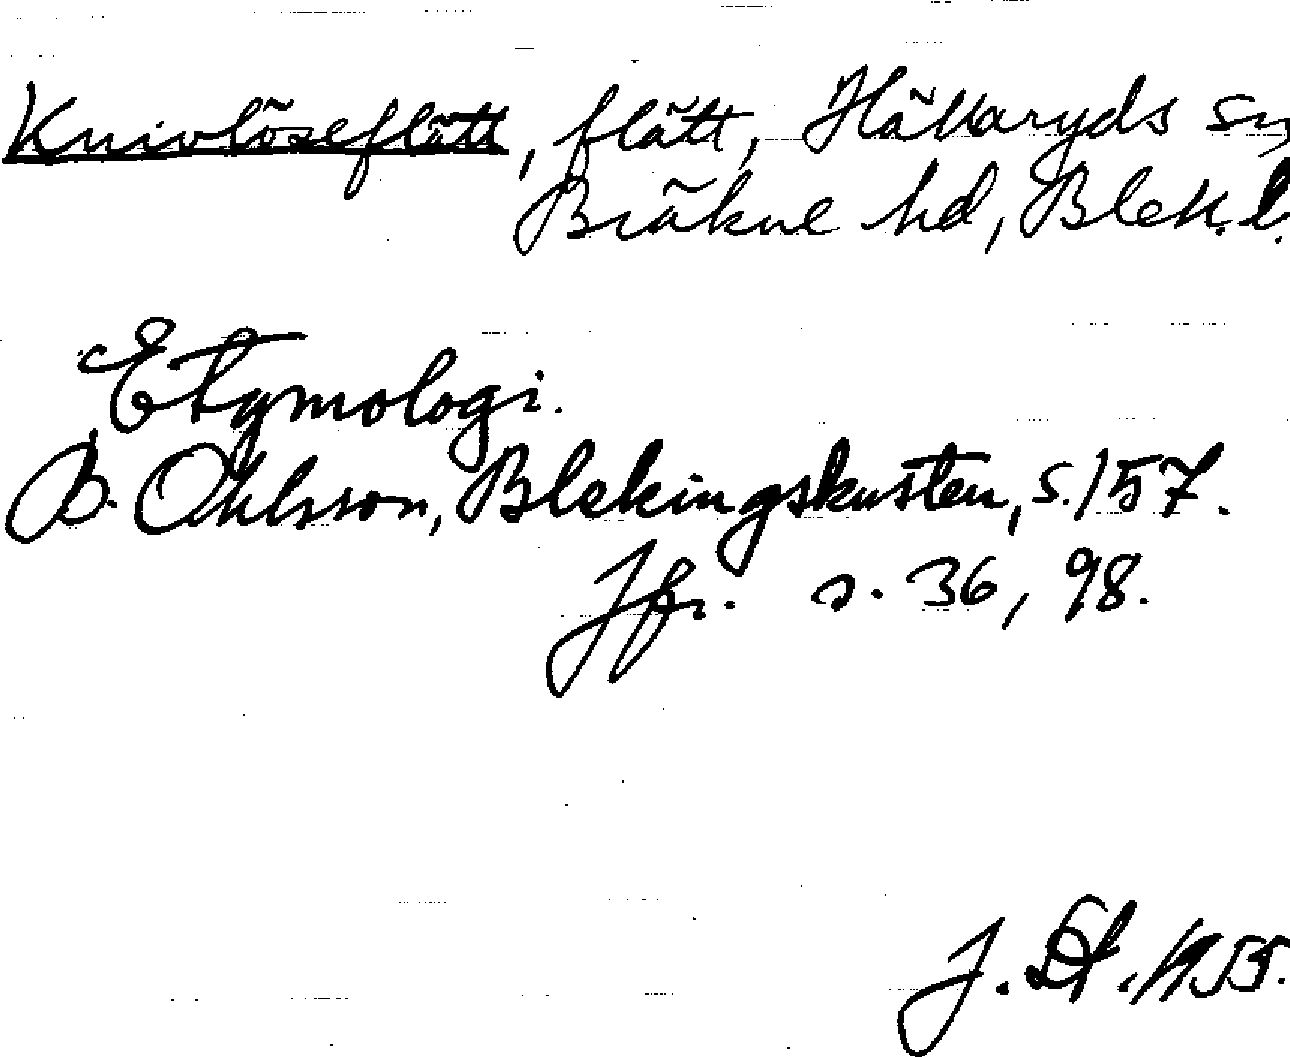 Knivlöseflått, flått, Hällaryds sn,
Bräkne hd, Blek. l.
Etymologi.
B. Ohlsson, Blekingskusten, s. 157.
Jfr. s. 36, 98.
J. St. 1955.